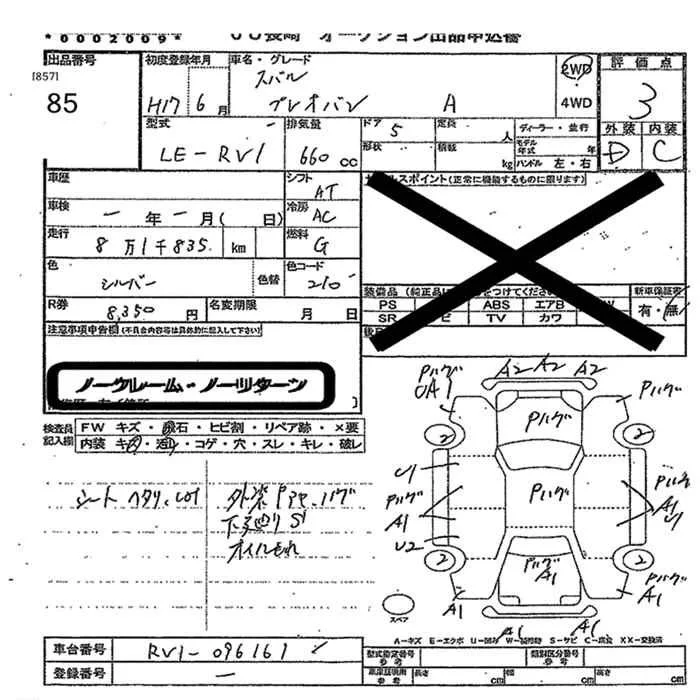 *00020099*
オークション出品申込書
出品番号
[857]
85
初度登録年月
H17 6月
車名・グレード
スバル
プレオバン A
2WD
4WD
評価点
3
外装 内装
D C
型式
LE-RV1
排気量
660 cc
ドア 5
形状
定員 人
積載 kg
ディーラー・並行
モデル年式 年
ハンドル 左・右
車歴
シフト AT
車検 ー年ー月( 日)
冷房 AC
走行 8万1千835 km
燃料 G
色 シルバー 色替
色コード 210
R券 8,350円
名変期限 月 日
セールスポイント(正常に機能するものに限ります)
装備品
PS ABS エアB
SR TV カワ
新車保証書
有・無
注意事項申告欄(不具合内容等は具体的に記入して下さい)
ノークレーム・ノーリターン
検査員記入欄
FW キズ・飛石・ヒビ割・リペア跡・×要
内装 キズ・汚れ・コゲ・穴・スレ・キレ・破レ
シート ヘタリ、
外装
下廻り S1
オイルもれ
Pハゲ A2 A2 A2 Pハゲ
A1
2 Pハゲ 2
U1
Pハゲ Pハゲ Pハゲ
A1 A1
U2 U1
2 Pハゲ 2
A1 Pハゲ
A1 A1
スペア
A1 A1
A-キズ E-エクボ U-凹み W-補修跡 S-サビ C-腐食 XX-交換済
車台番号 RV1-096161
登録番号 ー
型式指定番号 参考
類別区分番号 参考
長さ cm 幅 cm 高さ cm